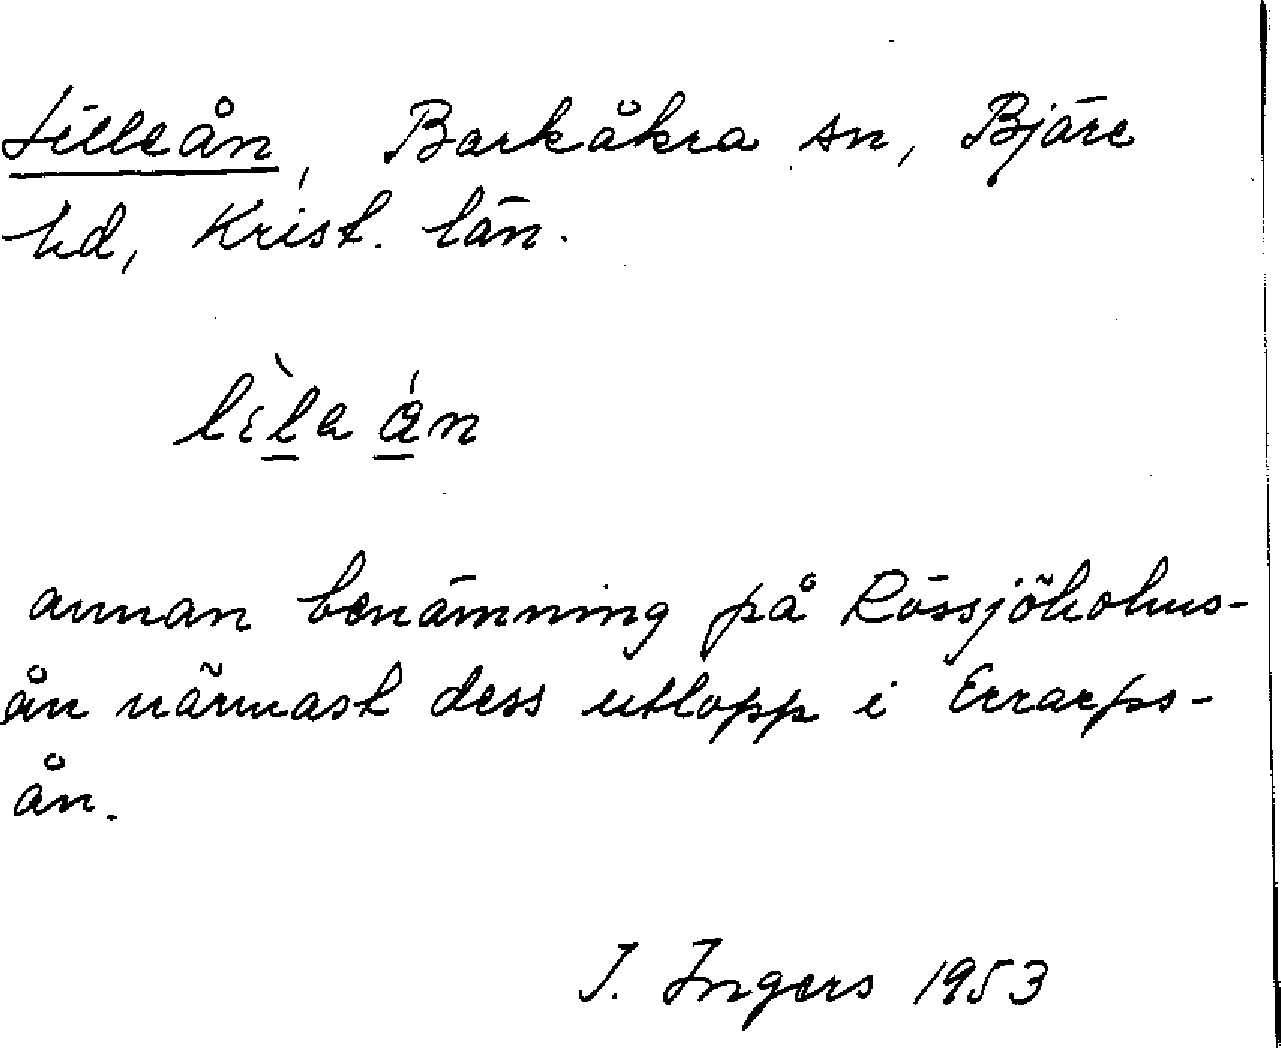 Lilleån, Barkåkra sn, Bjäre
hd, Krist. län.
lìla án
annan benämning på Rössjöholms-
ån närmast dess utlopp i Errarps-
ån.
I. Ingers 1953